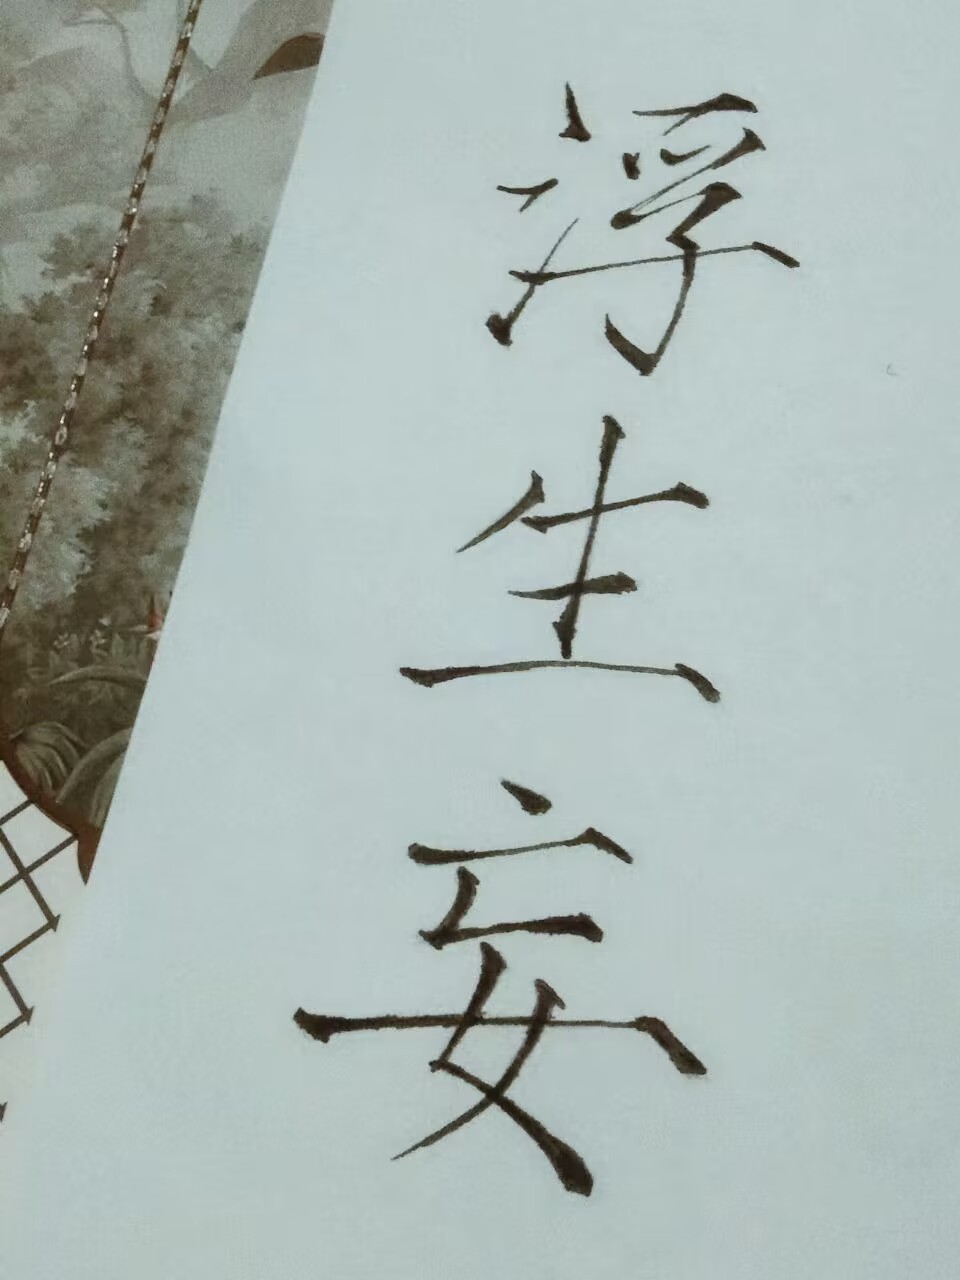 浮生妄